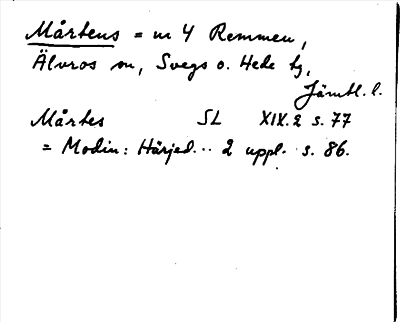 Mårtens = nr 4 Remmen,
Älvros sn, Svegs o. Hede tg,
Jämtl. l.
Mårtes SL XIX.2 s. 77
= Modin: Härjed... 2 uppl. s. 86.